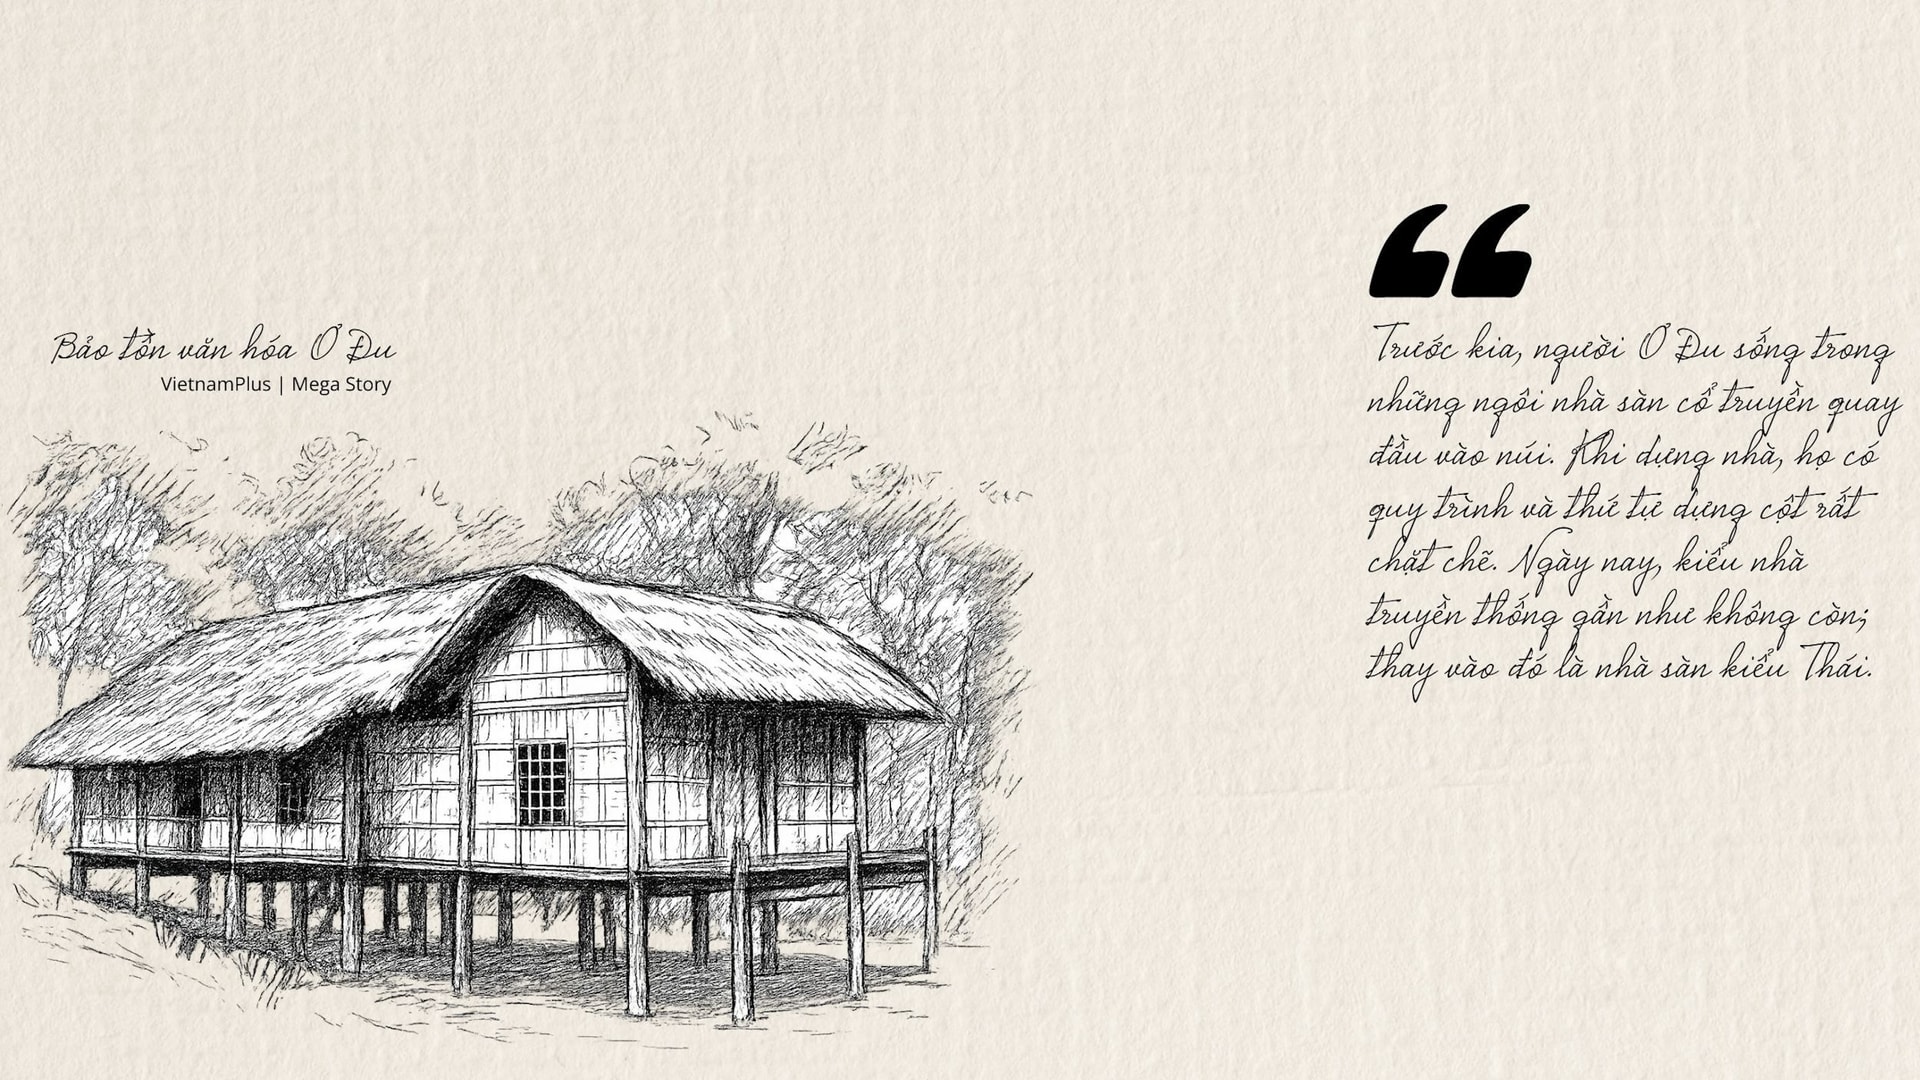 Bảo tồn văn hóa Ơ Đu
VietnamPlus | Mega Story
“
Trước kia, người Ơ Đu sống trong
những ngôi nhà sàn cổ truyền quay
đầu vào núi. Khi dựng nhà, họ có
quy trình và thứ tự dựng cột rất
chặt chẽ. Ngày nay, kiểu nhà
truyền thống gần như không còn;
thay vào đó là nhà sàn kiểu Thái.